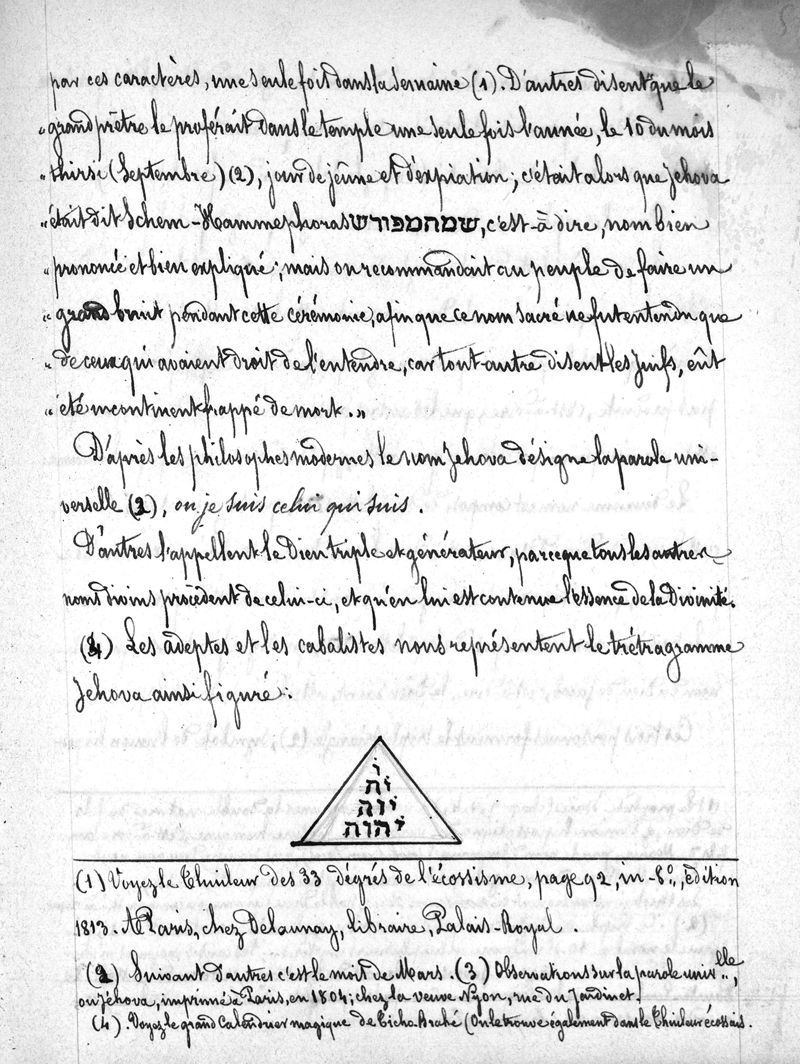 par ces caractères, une seule fois dans la semaine (1). D'autres disent que le
„ grand prêtre le proférait dans le temple une seule fois l'année, le 10 du mois
„ thirsi (Septembre) (2), jour de jeûne et d'expiation; c'était alors que Jehova
„ était dit Schem-Hammephoras שמהמפורש, c'est-à dire, nom bien
„ prononcé et bien expliqué; mais on recommandait au peuple de faire un
„ grand bruit pendant cette cérémonie, afin que ce nom sacré ne fut entendu que
„ de ceux qui avaient droit de l'entendre, car tout autre disent les Juifs, eût
„ été incontinent frappé de mort. „
D'après les philosophes modernes le nom Jehova désigne la parole uni-
verselle (3), ou je suis celui qui suis.
D'autres l'appellent le Dieu triple et générateur, parce que tous les autres
noms divins procèdent de celui-ci, et qu'en lui est contenue l'essence de la Divinité.
(4) Les adeptes et les cabalistes nous représentent le trétragramme
Jehova ainsi figuré:
י
יה
יוה
יהוה
(1) Voyez le Thuileur des 33 dégrés de l'écossisme, page 92, in-8º, édition
1813. A Paris, chez Delaunay, libraire, Palais-Royal.
(2) Suivant d'autres c'est le moit de Mars. (3) Observations sur la parole univlle,
ou Jéhova, imprimé à Paris, en 1804; chez la veuve Nyon, rue du Jardinet.
(4). Voyez le grand Calendrier magique de Ticho-Brahé (On le trouve également dans le Thuileur écossais.